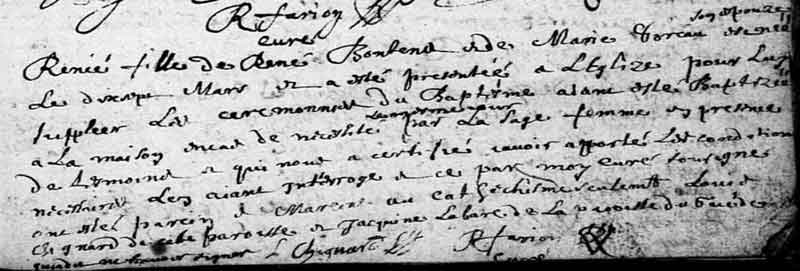 R farion
curé
son espouze
Renié fille de René Bontens et de Marie est née
Le disept Mars et a esté presentée a L'Eglize pour Luy
suppleer Les ceremonies du Baptême aiant esté Baptizée
a La maison en cas de necesité par La sage femme en presence
de temoins qui nous a certifié avoir apporté Les conditions
necessaires Les aiant Interrogé et ce par moy curé sousigné
ont estés parein et Mareine au catechisme seulemt Louis
Chignard de cette paroisse et Jacquine Labare de La paroisse du
signer L Chignard R farion
curé